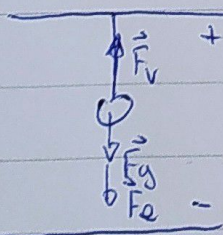 +
F⃗v
F⃗g
Fe
−